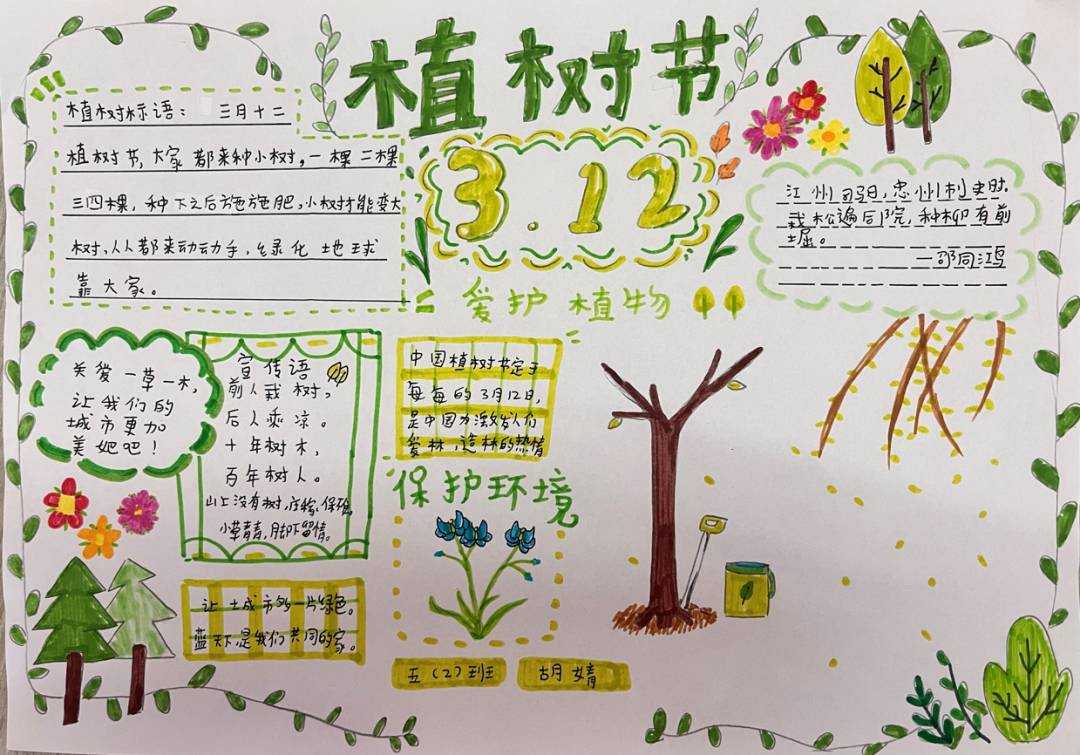 植树节
3.12
植树标语： 三月十二
植树节，大家都来种小树，一棵二棵
三四棵，种下之后施施肥，小树才能变大
树，人人都来动动手，绿化地球
靠大家。
江州司马，忠州刺史时，
栽松遍后院，种柳有前
堤。
爱护植物
关爱一草一木，
让我们的
城市更加
美妲吧！
宣传语
前人栽树，
后人乘凉。
十年树木，
百年树人。
山上没有树，庄稼保
小草青青，脚下留情。
中国植树节定于
每每的3月12日，
是中国为激发人们
爱林，造林的热情
保护环境
让土成市多一片绿色。
蓝天下是我们共同的家。
五（2）班 胡婧